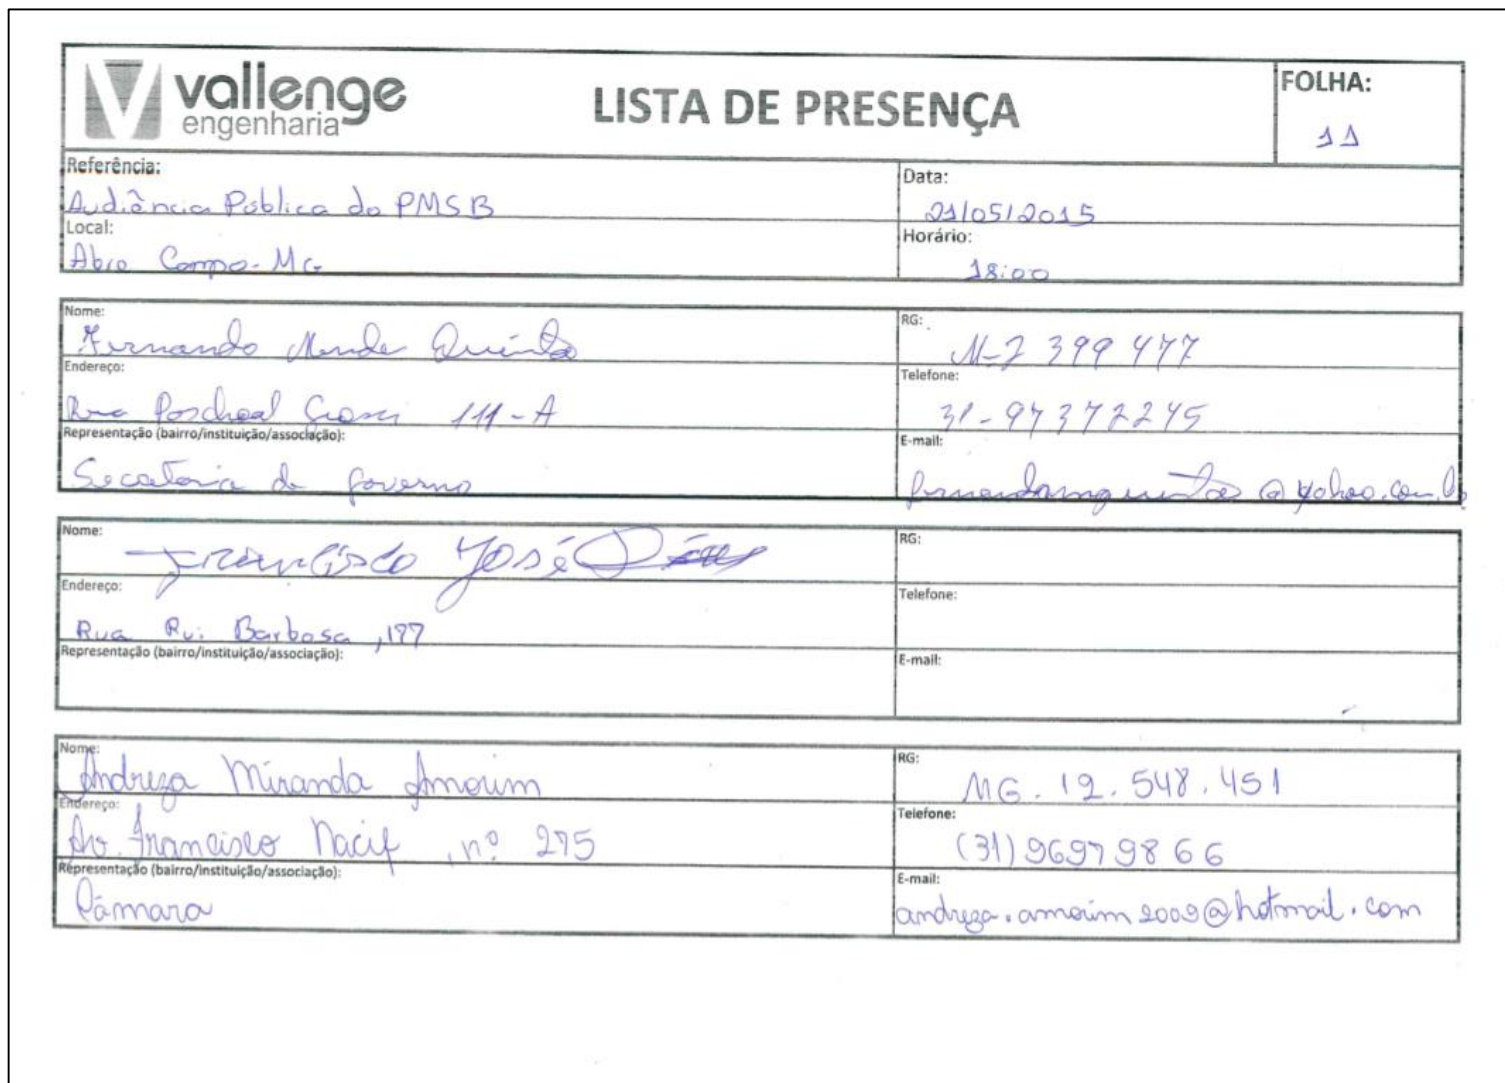 vallenge
engenharia
LISTA DE PRESENÇA
FOLHA:
11
Referência:
Audiência Pública do PMSB
Data:
21/05/2015
Local:
Abre Campo-MG
Horário:
18:00
Nome:
Fernando Mende
RG:
M-2 399 477
Endereço:
Rua 111-A
Telefone:
31-97372245
Representação (bairro/instituição/associação):
Secataria de governo
E-mail:
@yahoo.com.br
Nome:
Francisco José
RG:
Endereço:
Rua Rui Barbosa, 177
Telefone:
Representação (bairro/instituição/associação):
E-mail:
Nome:
Andreza Miranda Amorim
RG:
MG. 12. 548. 451
Endereço:
Av. Francisco Nacif, nº 275
Telefone:
(31) 96979866
Representação (bairro/instituição/associação):
Câmara
E-mail:
andreza.amorim2009@hotmail.com